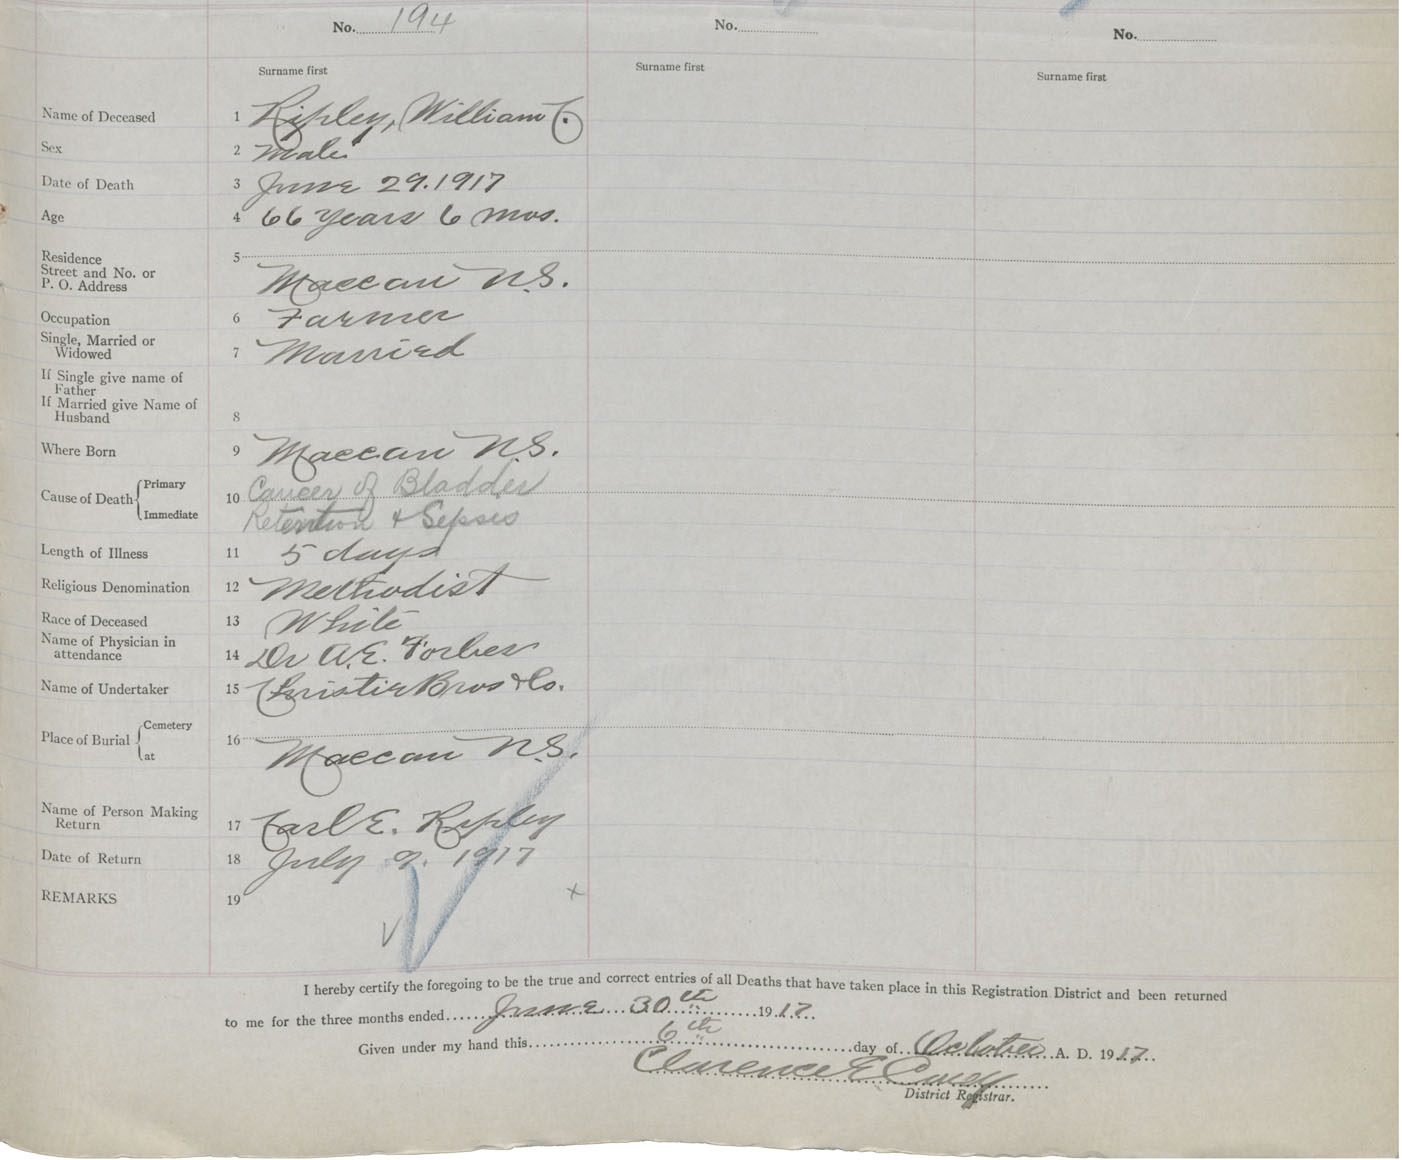 No. 194
No.
No.
Surname first
Surname first
Surname first
Name of Deceased 1 Ripley, William C.
Sex 2 Male
Date of Death 3 June 29. 1917
Age 4 66 years 6 mos.
Residence 5
Street and No. or
P. O. Address Maccan N.S.
Occupation 6 Farmer
Single, Married or
Widowed 7 Married
If Single give name of
Father
If Married give Name of
Husband 8
Where Born 9 Maccan N.S.
Cause of Death Primary 10 Cancer of Bladder
Immediate Retention & Sepsis
Length of Illness 11 5 days
Religious Denomination 12 Methodist
Race of Deceased 13 White
Name of Physician in
attendance 14 Dr A. E. Forbes
Name of Undertaker 15 Christie Bros & Co.
Place of Burial Cemetery 16
at Maccan N.S.
Name of Person Making
Return 17 Carl E. Ripley
Date of Return 18 July 9. 1917
REMARKS 19
I hereby certify the foregoing to be the true and correct entries of all Deaths that have taken place in this Registration District and been returned
to me for the three months ended June 30th 1917
Given under my hand this 6th day of October A. D. 1917
Clarence E
District Registrar.